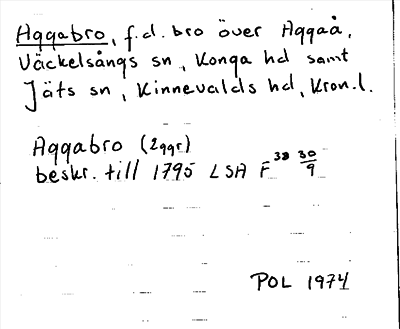 Aggabro, f.d. bro över Aggaå,
Väckelsångs sn, Konga hd samt
Jäts sn, Kinnevalds hd, Kron.l.
Aggabro (2ggr)
beskr. till 1795 LSA F³⁸ 30/9
POL 1974